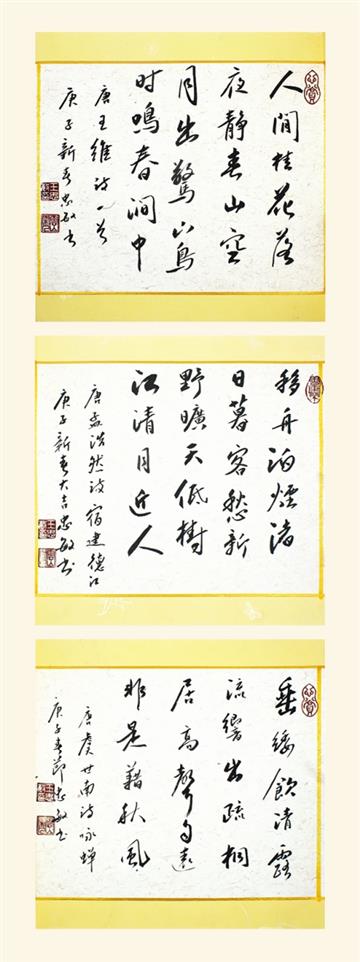 人間桂花落
夜靜春山空
月出驚山鳥
时鳴春澗中
唐王維诗一首
庚子新春忠敏书
移舟泊煙渚
日暮客愁新
野曠天低樹
江清月近人
唐孟浩然诗宿建德江
庚子新春大吉忠敏书
垂緌飲清露
流響出疏桐
居高聲自遠
非是藉秋風
唐虞世南诗咏蝉
庚子春節忠敏书